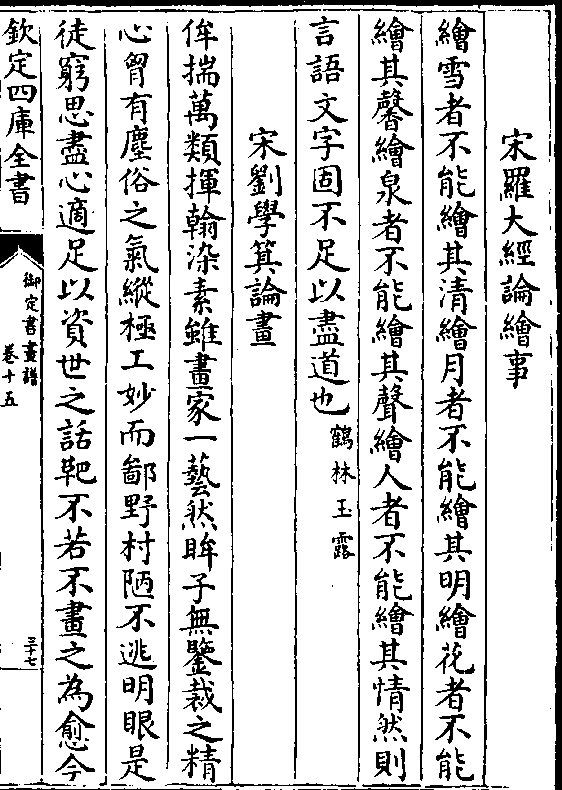 宋羅大經論繪事
繪雪者不能繪其清繪月者不能繪其明繪花者不能
繪其馨繪泉者不能繪其聲繪人者不能繪其情然則
言語文字固不足以盡道也鶴林玉露
宋劉學箕論畫
侔揣萬類揮翰染素雖畫家一藝然眸子無鑒裁之精
心胷有塵俗之氣縱極工妙而鄙野村陋不逃明眼是
徒窮思盡心適足以資世之話靶不若不畫之為愈今
欽定四庫全書
御定書畫譜
卷十五
三十七